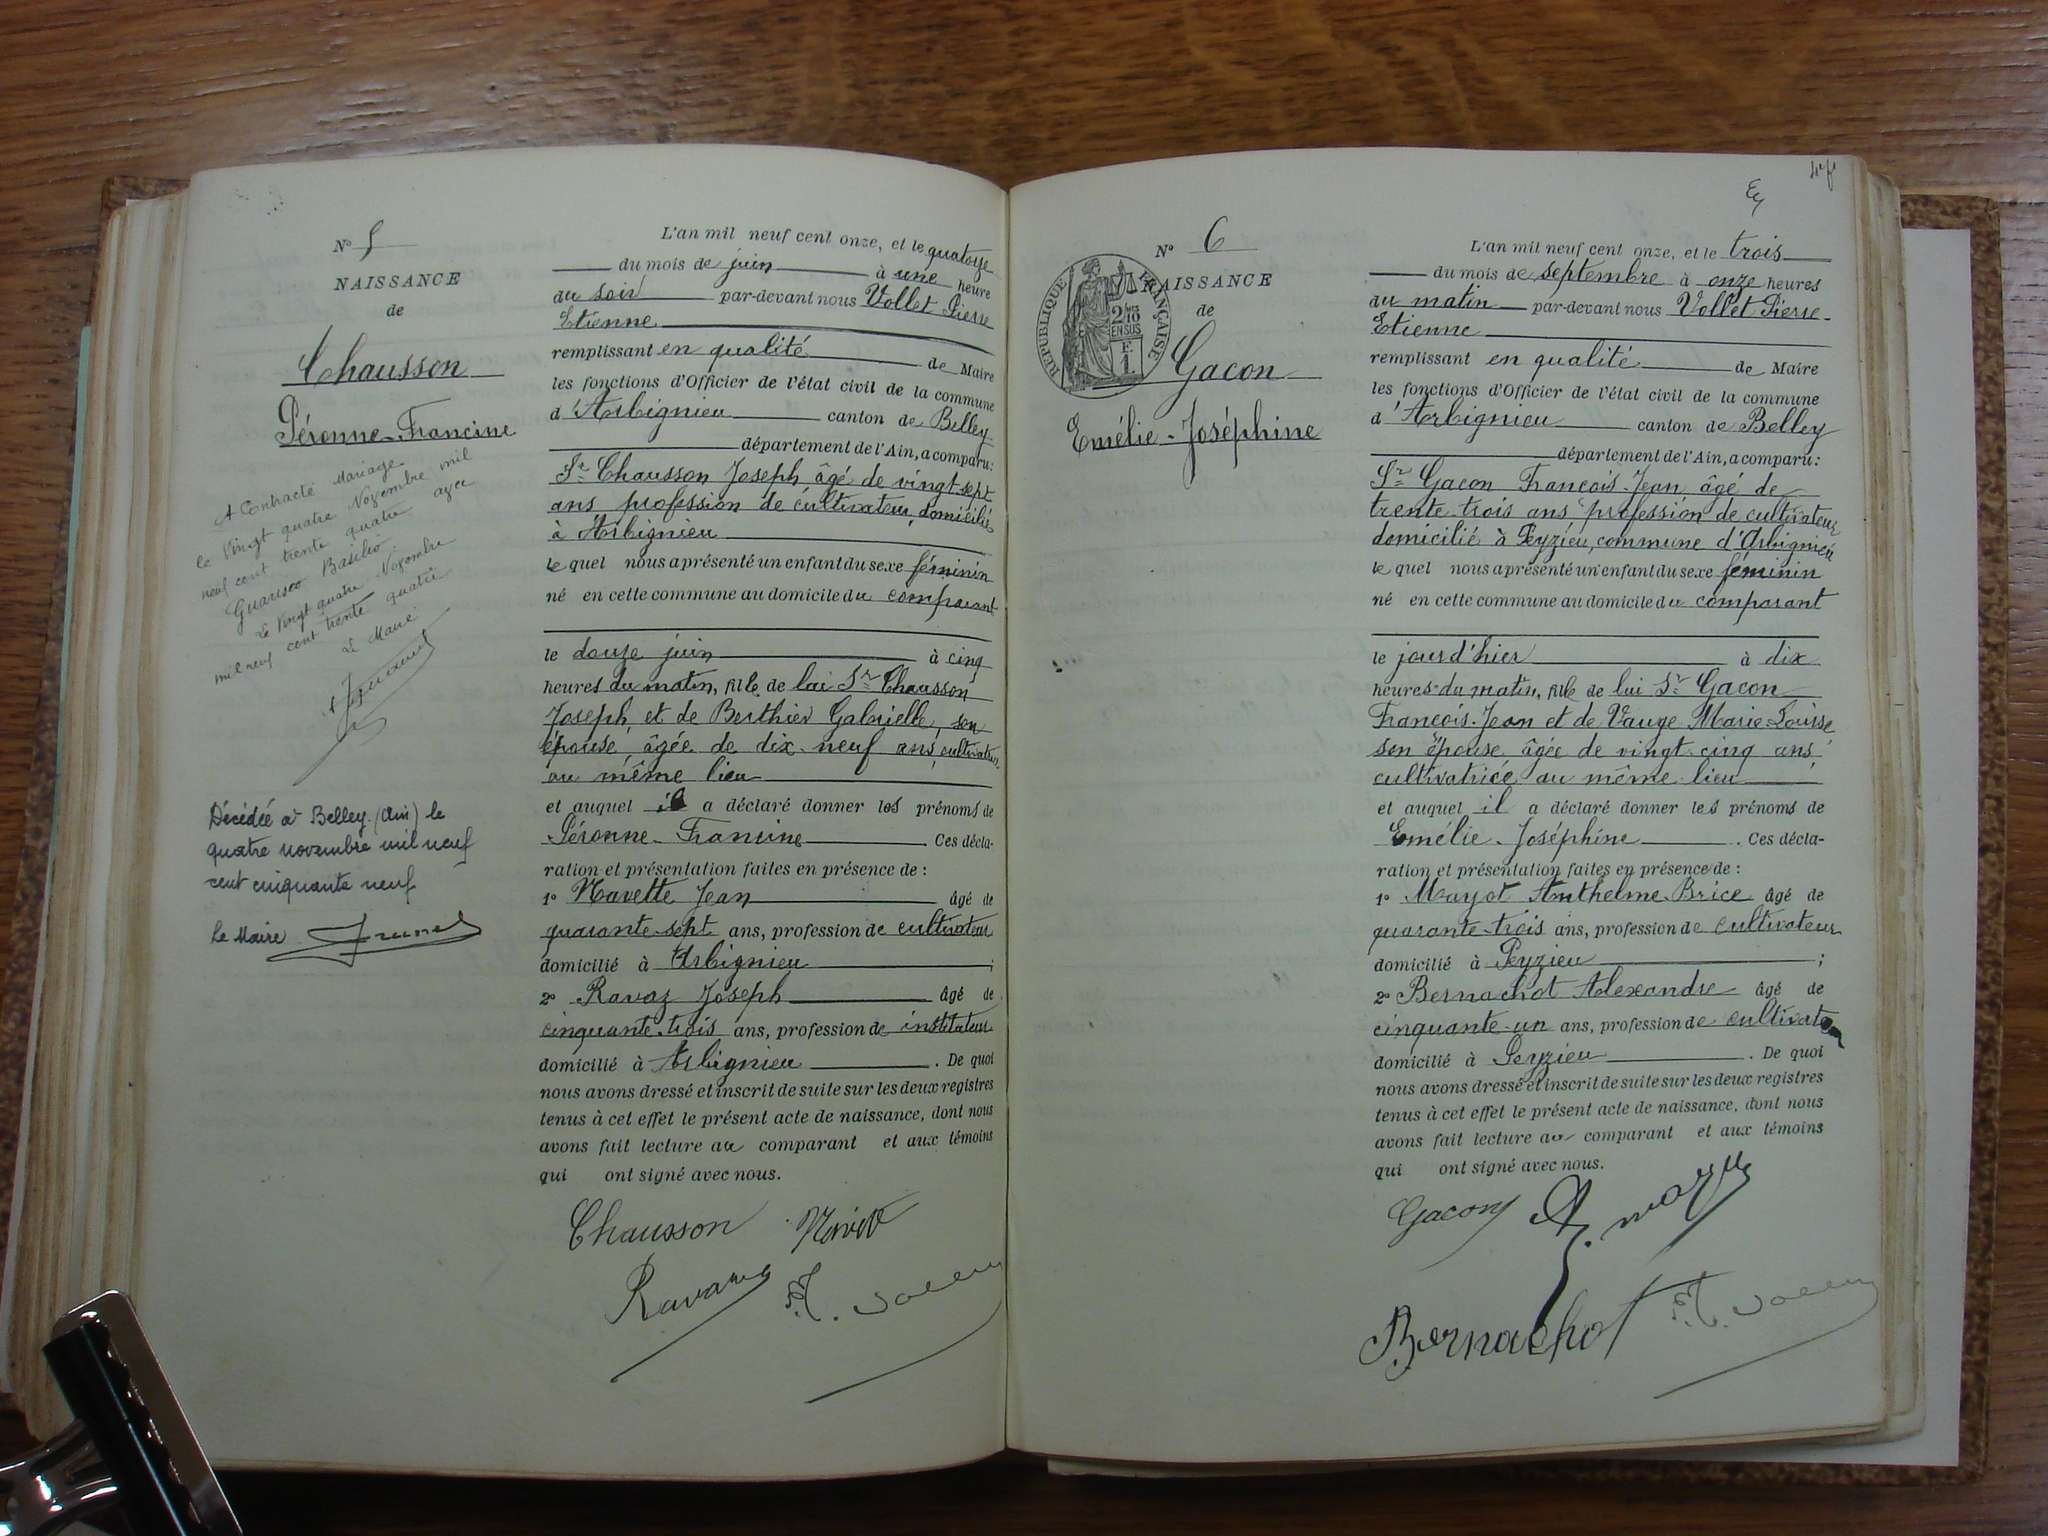 N° 5
NAISSANCE
de
Chausson
Péronne-Francine
A Contracté Mariage
le Vingt quatre Novembre mil
neuf cent trente quatre avec
Guarisco Basilio
Le Vingt quatre Novembre
mil neuf cent trente quatre
Le Maire
Décédée à Belley (Ain) le
quatre novembre mil neuf
cent cinquante neuf
Le Maire
L'an mil neuf cent onze, et le quatorze
du mois de juin à une heure
du soir par-devant nous Vollet Pierre
Etienne
remplissant en qualité de Maire
les fonctions d'Officier de l'état civil de la commune
d'Arbignieu canton de Belley
département de l'Ain, a comparu:
Sr Chausson Joseph âgé de vingt sept
ans profession de cultivateur, domicilié
à Arbignieu
le quel nous a présenté un enfant du sexe féminin
né en cette commune au domicile du comparant
le douze juin à cinq
heures du matin, fille de lui Sr Chausson
Joseph, et de Berthier Gabrielle, son
épouse, âgée de dix-neuf ans, cultivatrice
au même lieu
et auquel il a déclaré donner les prénoms de
Péronne-Francine Ces décla-
ration et présentation faites en présence de :
1° Navette Jean âgé de
quarante-sept ans, profession de cultivateur
domicilié à Arbignieu ;
2° Ravaz Joseph âgé de
cinquante-trois ans, profession de instituteur
domicilié à Arbignieu . De quoi
nous avons dressé et inscrit de suite sur les deux registres
tenus à cet effet le présent acte de naissance, dont nous
avons fait lecture au comparant et aux témoins
qui ont signé avec nous.
Chausson
Ravaz
N° 6
NAISSANCE
de
Gacon
Emélie-Joséphine
RÉPUBLIQUE FRANÇAISE
2/10
EN SUS
L'an mil neuf cent onze, et le trois
du mois de septembre à onze heures
du matin par-devant nous Vollet Pierre-
Etienne
remplissant en qualité de Maire
les fonctions d'Officier de l'état civil de la commune
d'Arbignieu canton de Belley
département de l'Ain, a comparu:
Sr Gacon François-Jean âgé de
trente-trois ans profession de cultivateur
domicilié à Peyzieu, commune d'Arbignieu
le quel nous a présenté un enfant du sexe féminin
né en cette commune au domicile du comparant
le jourd'hier à dix
heures du matin, fille de lui Sr Gacon
François-Jean et de Vauge Marie-Louise
son épouse, âgée de vingt-cinq ans,
cultivatrice au même lieu
et auquel il a déclaré donner les prénoms de
Emélie-Joséphine . Ces décla-
ration et présentation faites en présence de :
1° Mayot Anthelme Brice âgé de
quarante-trois ans, profession de cultivateur
domicilié à Peyzieu ;
2° Bernachot Alexandre âgé de
cinquante-un ans, profession de cultivateur
domicilié à Peyzieu . De quoi
nous avons dressé et inscrit de suite sur les deux registres
tenus à cet effet le présent acte de naissance, dont nous
avons fait lecture au comparant et aux témoins
qui ont signé avec nous.
Gacon
Bernachot